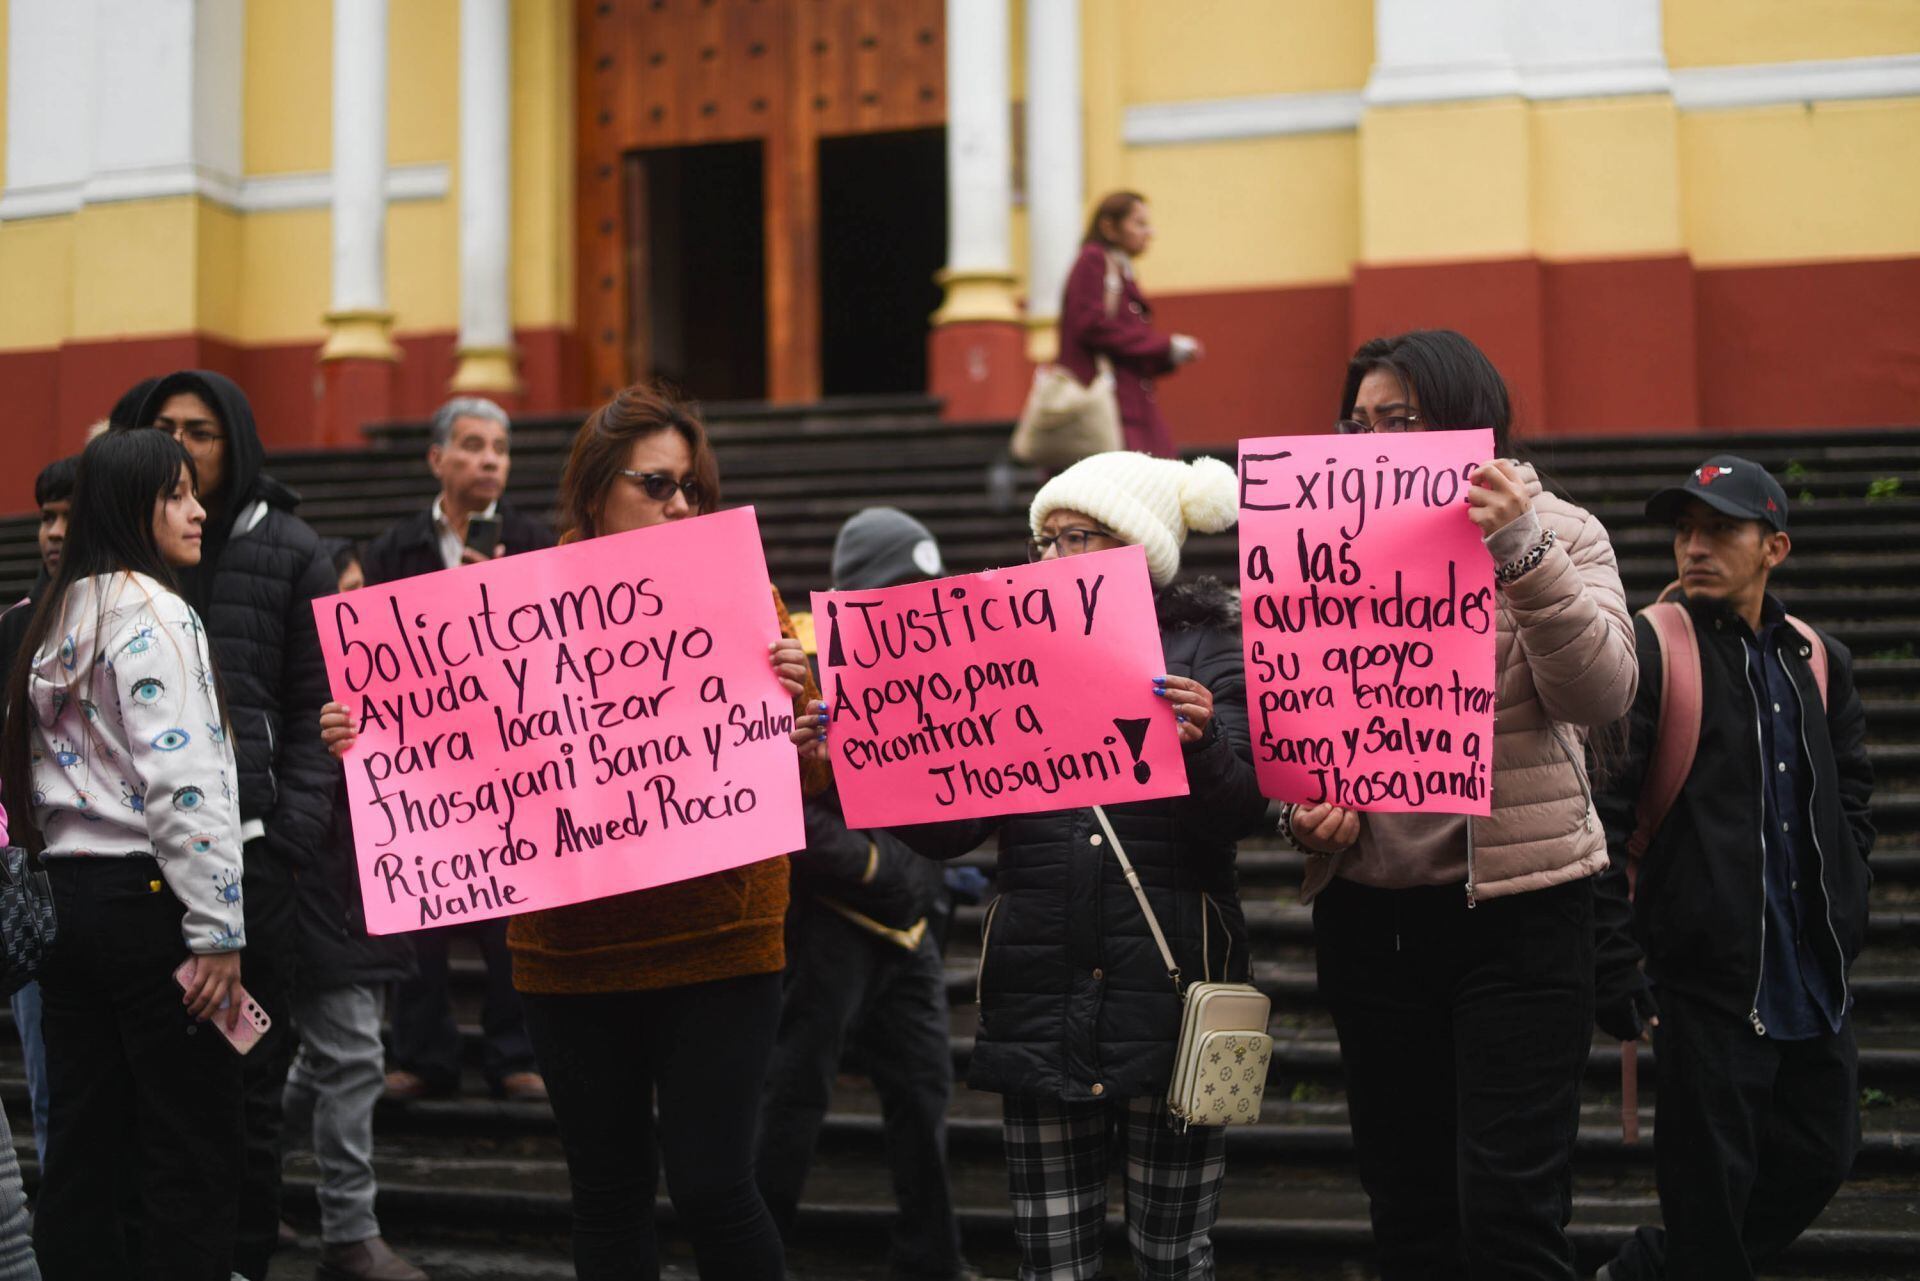 Solicitamos
Ayuda y Apoyo
para localizar a
Jhosajani Sana y Salva
Ricardo Ahued, Rocío
Nahle
¡Justicia y
Apoyo, para
encontrar a
Jhosajani!
Exigimos
a las
autoridades
su apoyo
para encontrar
sana y Salva a
Jhosajandi